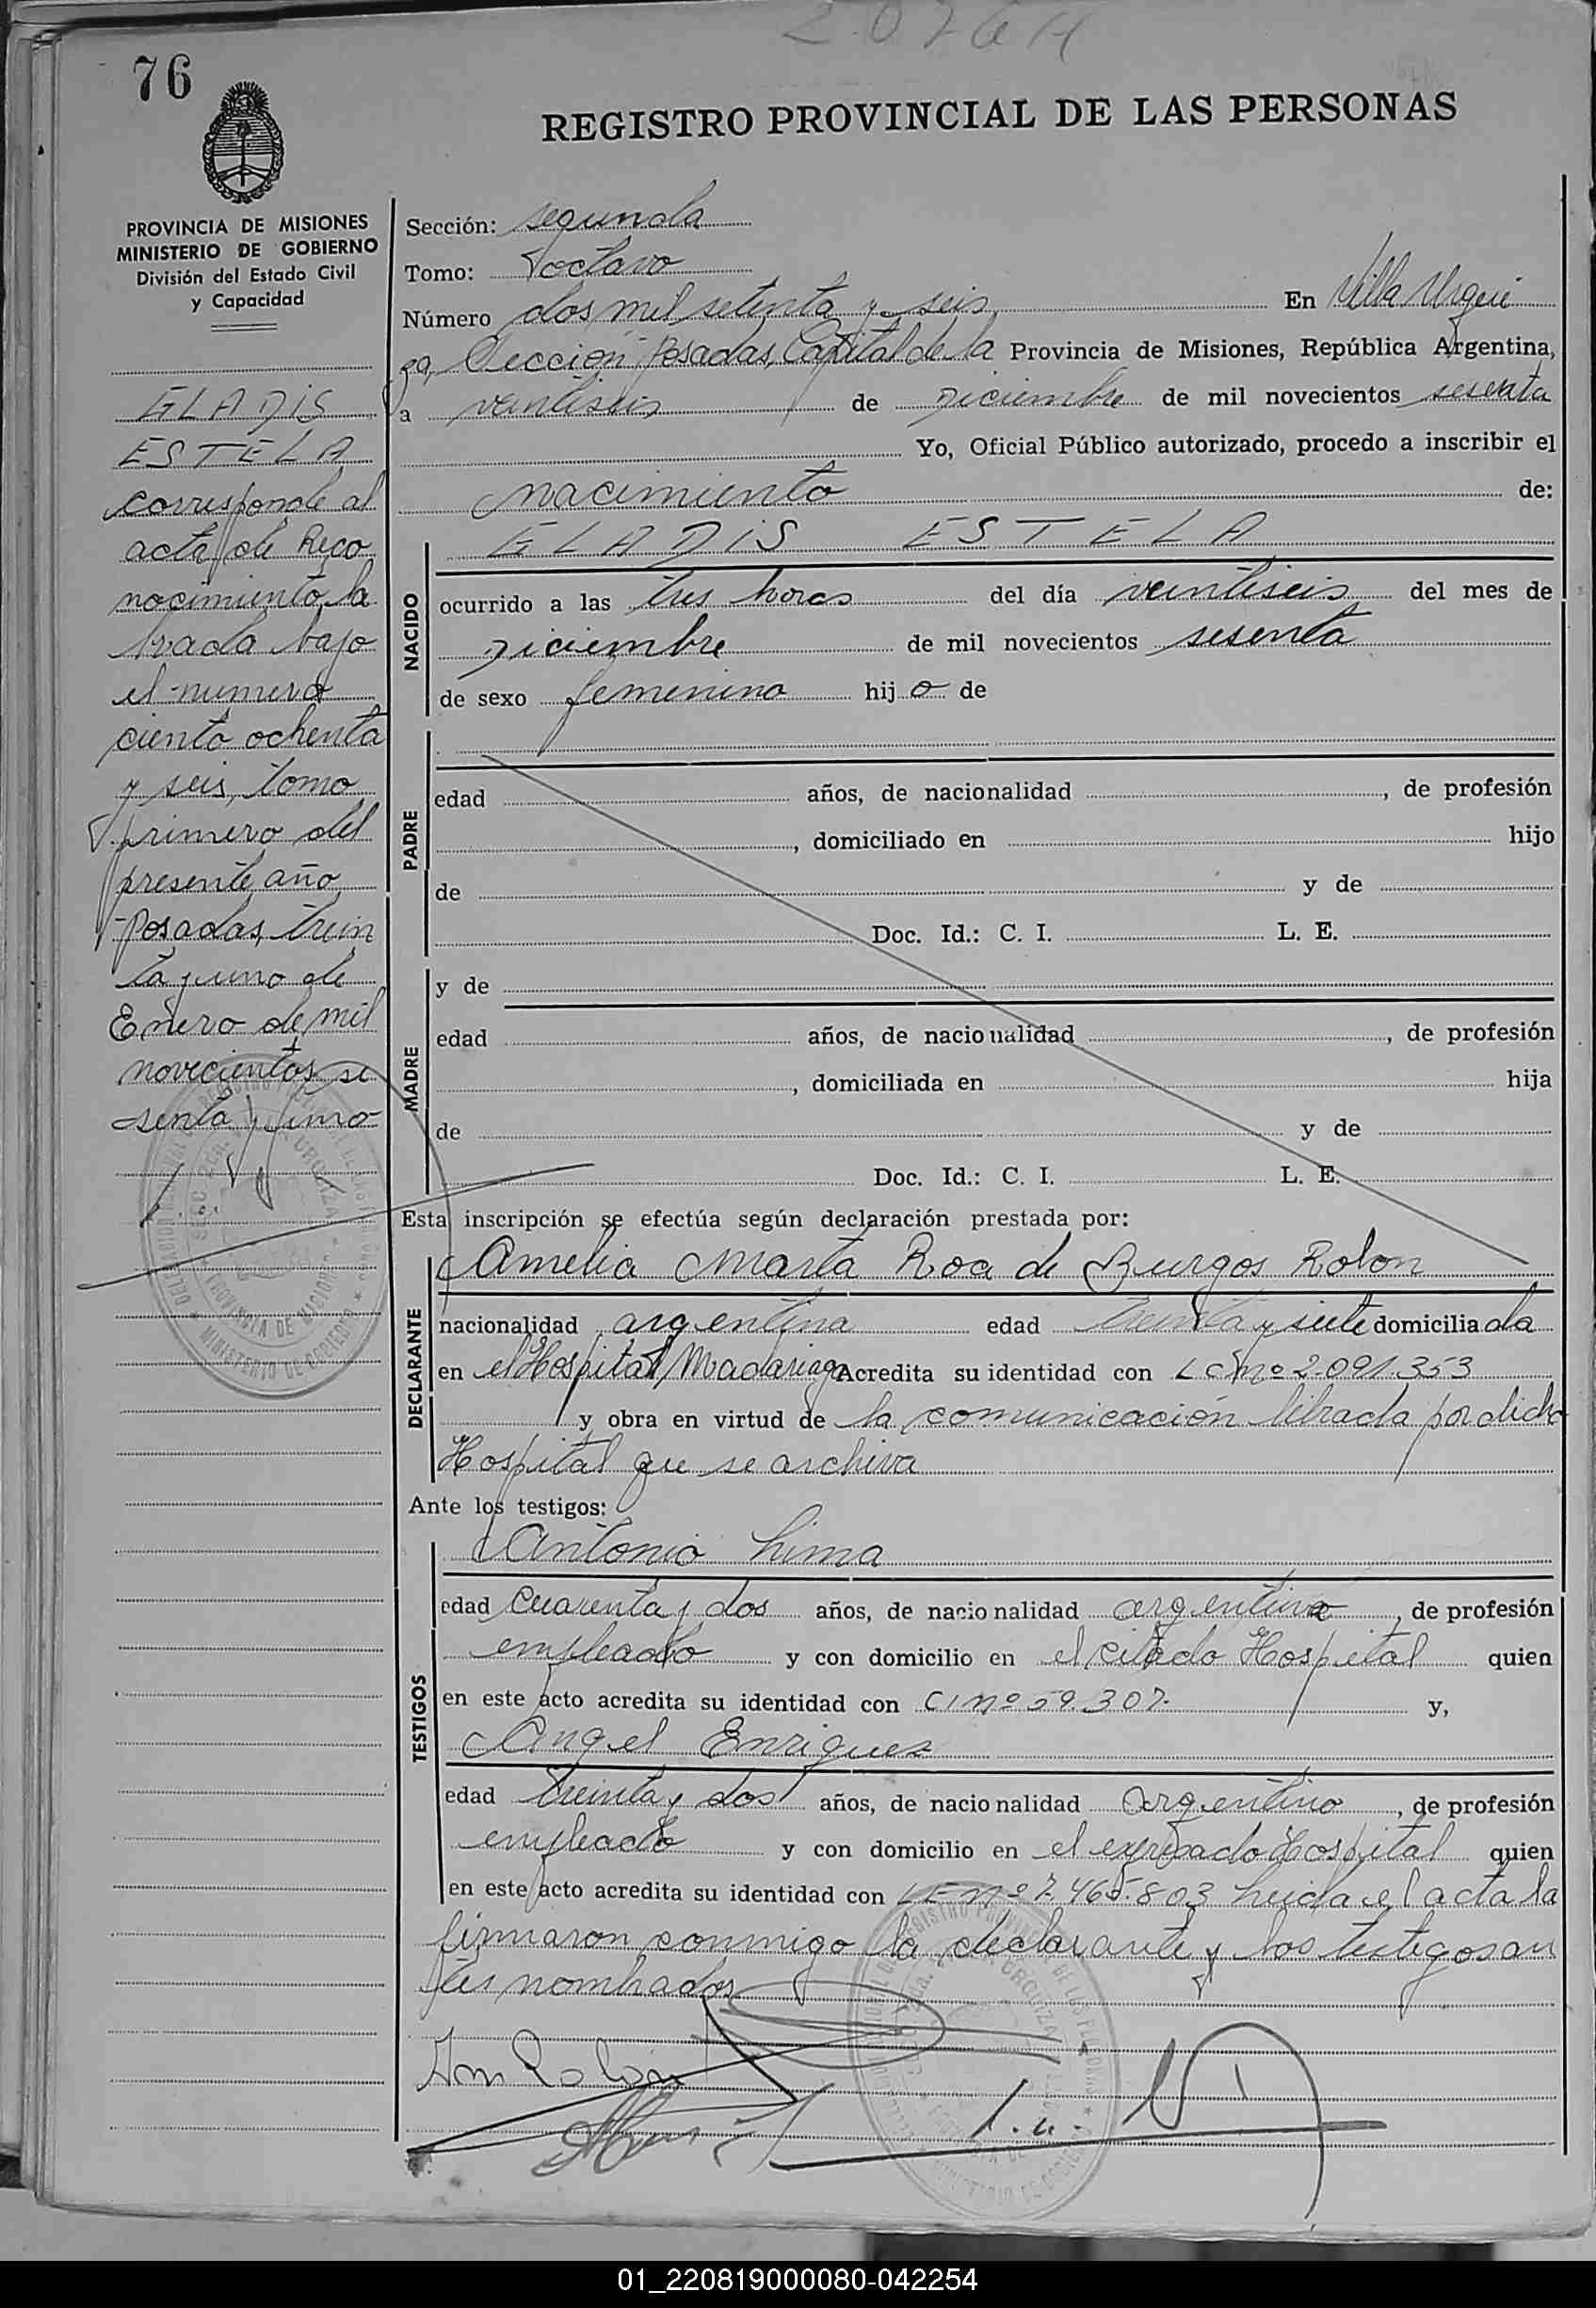 2076 H
76
REGISTRO PROVINCIAL DE LAS PERSONAS
PROVINCIA DE MISIONES
MINISTERIO DE GOBIERNO
División del Estado Civil
y Capacidad
GLADIS
ESTELA
corresponde al
acta de Reco
nocimiento la
brada bajo
el numero
ciento ochenta
y seis, tomo
primero del
presente año
Posadas, trein
ta y uno de
Enero de mil
novecientos se
senta y uno
Sección: segunda
Tomo: octavo
Número dos mil setenta y seis En Villa Urqui
za, Sección Posadas, Capital de la Provincia de Misiones, República Argentina,
a veintiseis de Diciembre de mil novecientos sesenta
Yo, Oficial Público autorizado, procedo a inscribir el
nacimiento de:
NACIDO
GLADIS ESTELA
ocurrido a las tres horas del día veintiseis del mes de
Diciembre de mil novecientos sesenta
de sexo femenino hij o de
PADRE
edad años, de nacionalidad , de profesión
, domiciliado en hijo
de y de
Doc. Id.: C. I. L. E.
MADRE
y de
edad años, de nacionalidad , de profesión
, domiciliada en hija
de y de
Doc. Id.: C. I. L. E.
Esta inscripción se efectúa según declaración prestada por:
DECLARANTE
Amelia Marta Roa de Burgos Rolon
nacionalidad argentina edad treinta y siete domiciliada
en el Hospital Madariaga Acredita su identidad con LC Nº 2.091.353
y obra en virtud de la comunicación librada por dicho
Hospital que se archiva
Ante los testigos:
TESTIGOS
Antonio Lima
edad cuarenta y dos años, de nacionalidad argentino, de profesión
empleado y con domicilio en el citado Hospital quien
en este acto acredita su identidad con CI Nº 59.307. y,
Angel Enriquez
edad treinta y dos años, de nacionalidad argentino, de profesión
empleado y con domicilio en el expresado Hospital quien
en este acto acredita su identidad con LE Nº 7.465.803 Leida el acta la
firmaron conmigo la declarante y los testigos an
tes nombrados
01_220819000080-042254